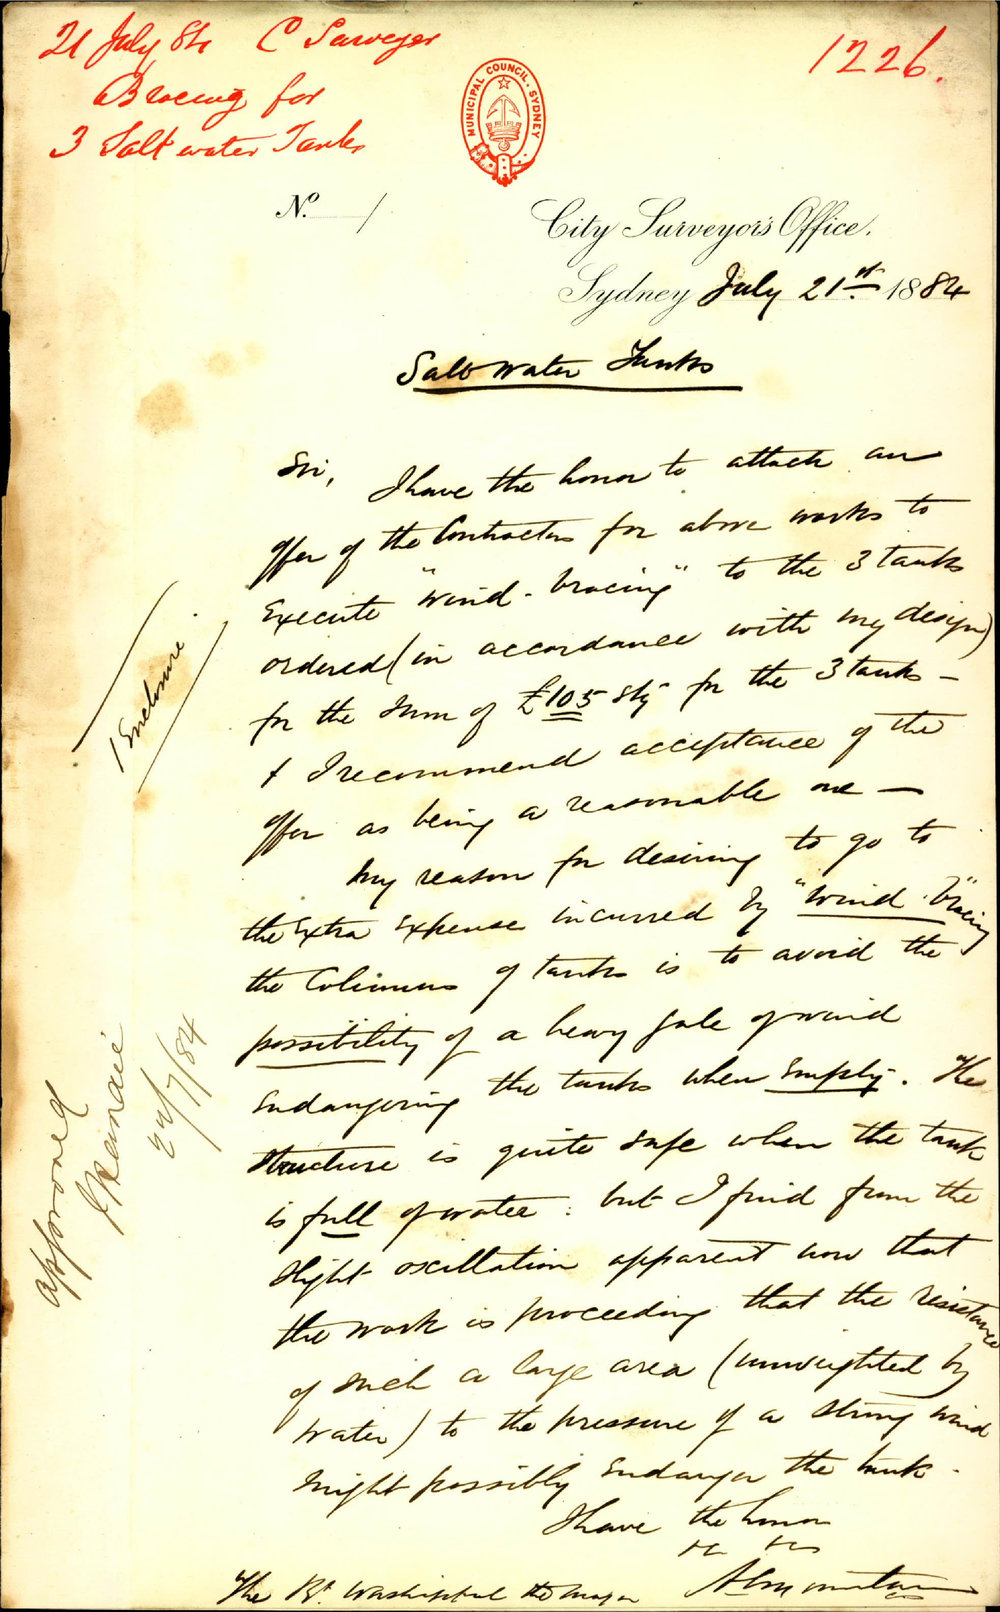 21 July 84 C Surveyor
Bracing for
3 Salt water Tanks
1226.
MUNICIPAL COUNCIL. SYDNEY
No. /
City Surveyor's Office.
Sydney July 21st 1884
Salt water Tanks
Sir,
I have the honor to attach an
offer of the Contractors for above works to
Execute "wind-bracing" to the 3 tanks
ordered (in accordance with my design)
for the sum of £105 stg for the 3 tanks –
& I recommend acceptance of the
offer as being a reasonable one —
My reason for desiring to go to
the Extra Expense incurred by "wind bracing"
the Columns of tanks is to avoid the
possibility of a heavy gale of wind
Endangering the tanks when Empty. The
structure is quite safe when the tank
is full of water: but I find from the
slight oscillation apparent now that
the work is proceeding that the resistance
of such a large area (unweighted by
water) to the pressure of a strong wind
might possibly Endanger the tank.
I have the honor
The Rt. Worshipful the Mayor
1 Enclosure.
approved
22/7/84